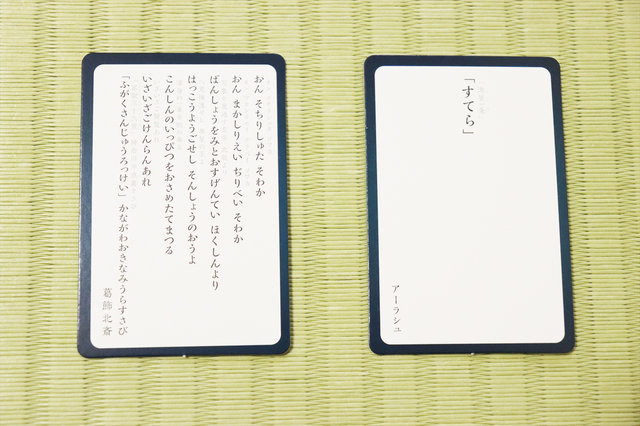 おん そちりしゅた そわか
おん まかしりえい ぢりべい そわか
ばんしょうをみとおすげんてい ほくしんより
はっこうようごせし そんしょうのおうよ
こんしんのいっぴつをおさめたてまつる
いざいざごけんらんあれ
「ふがくさんじゅうろっけい」かながわおきなみうらすさび
葛飾北斎
「すてら」
アーラシュ